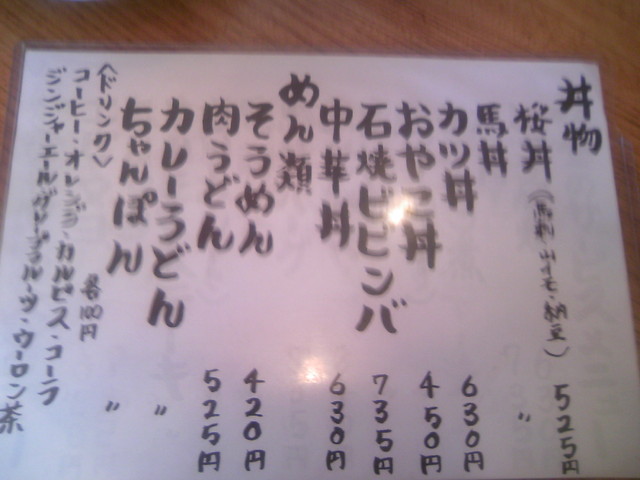 丼物
桜丼(馬刺・山イモ・納豆) 525円
馬丼 〃
カツ丼 630円
おやこ丼 450円
石焼ビビンバ 735円
中華丼 630円
めん類
そうめん 420円
肉うどん 525円
カレーうどん 〃
ちゃんぽん 〃
〈ドリンク〉 各100円
コーヒー・オレンジ・カルピス・コーラ
ジンジャーエール・グレープフルーツ・ウーロン茶